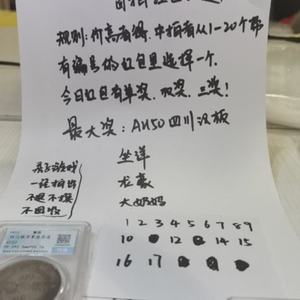 规则:价高者得,中拍者从1-20个带
有编号的红包里选择一个
今日红包有单奖,双奖,三奖!
最大奖:AU50四川汉板
坐洋
龙豪
大奶妈
亲子游戏
一经拍出
不退不换
不回收
1 2 3 4 5 6 7 8 9
10 12 14 15
16 17